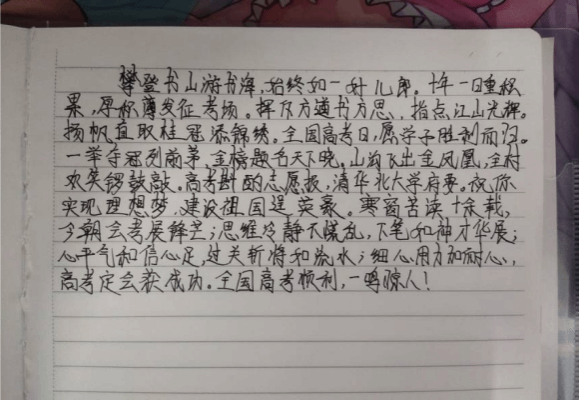 攀登书山游书海,始终如一好儿郎。十年一日重积
果,厚积薄发征考场。挥斥方遒书方思,指点江山光辉。
扬帆直取桂冠添锦绣。全国高考日,愿学子胜利而归。
一举夺冠列前茅,金榜题名天下晓。山沟飞出金凤凰,全村
欢笑锣鼓敲。高考斟酌志愿报,清华北大学府要。祝你
实现理想梦,建设祖国逞英豪。寒窗苦读十余载,
今朝会考展锋芒;思维冷静不慌乱,下笔如神才华展;
心平气和信心足,过关斩将如流水;细心用力加耐心,
高考定会获成功。全国高考顺利,一鸣惊人!